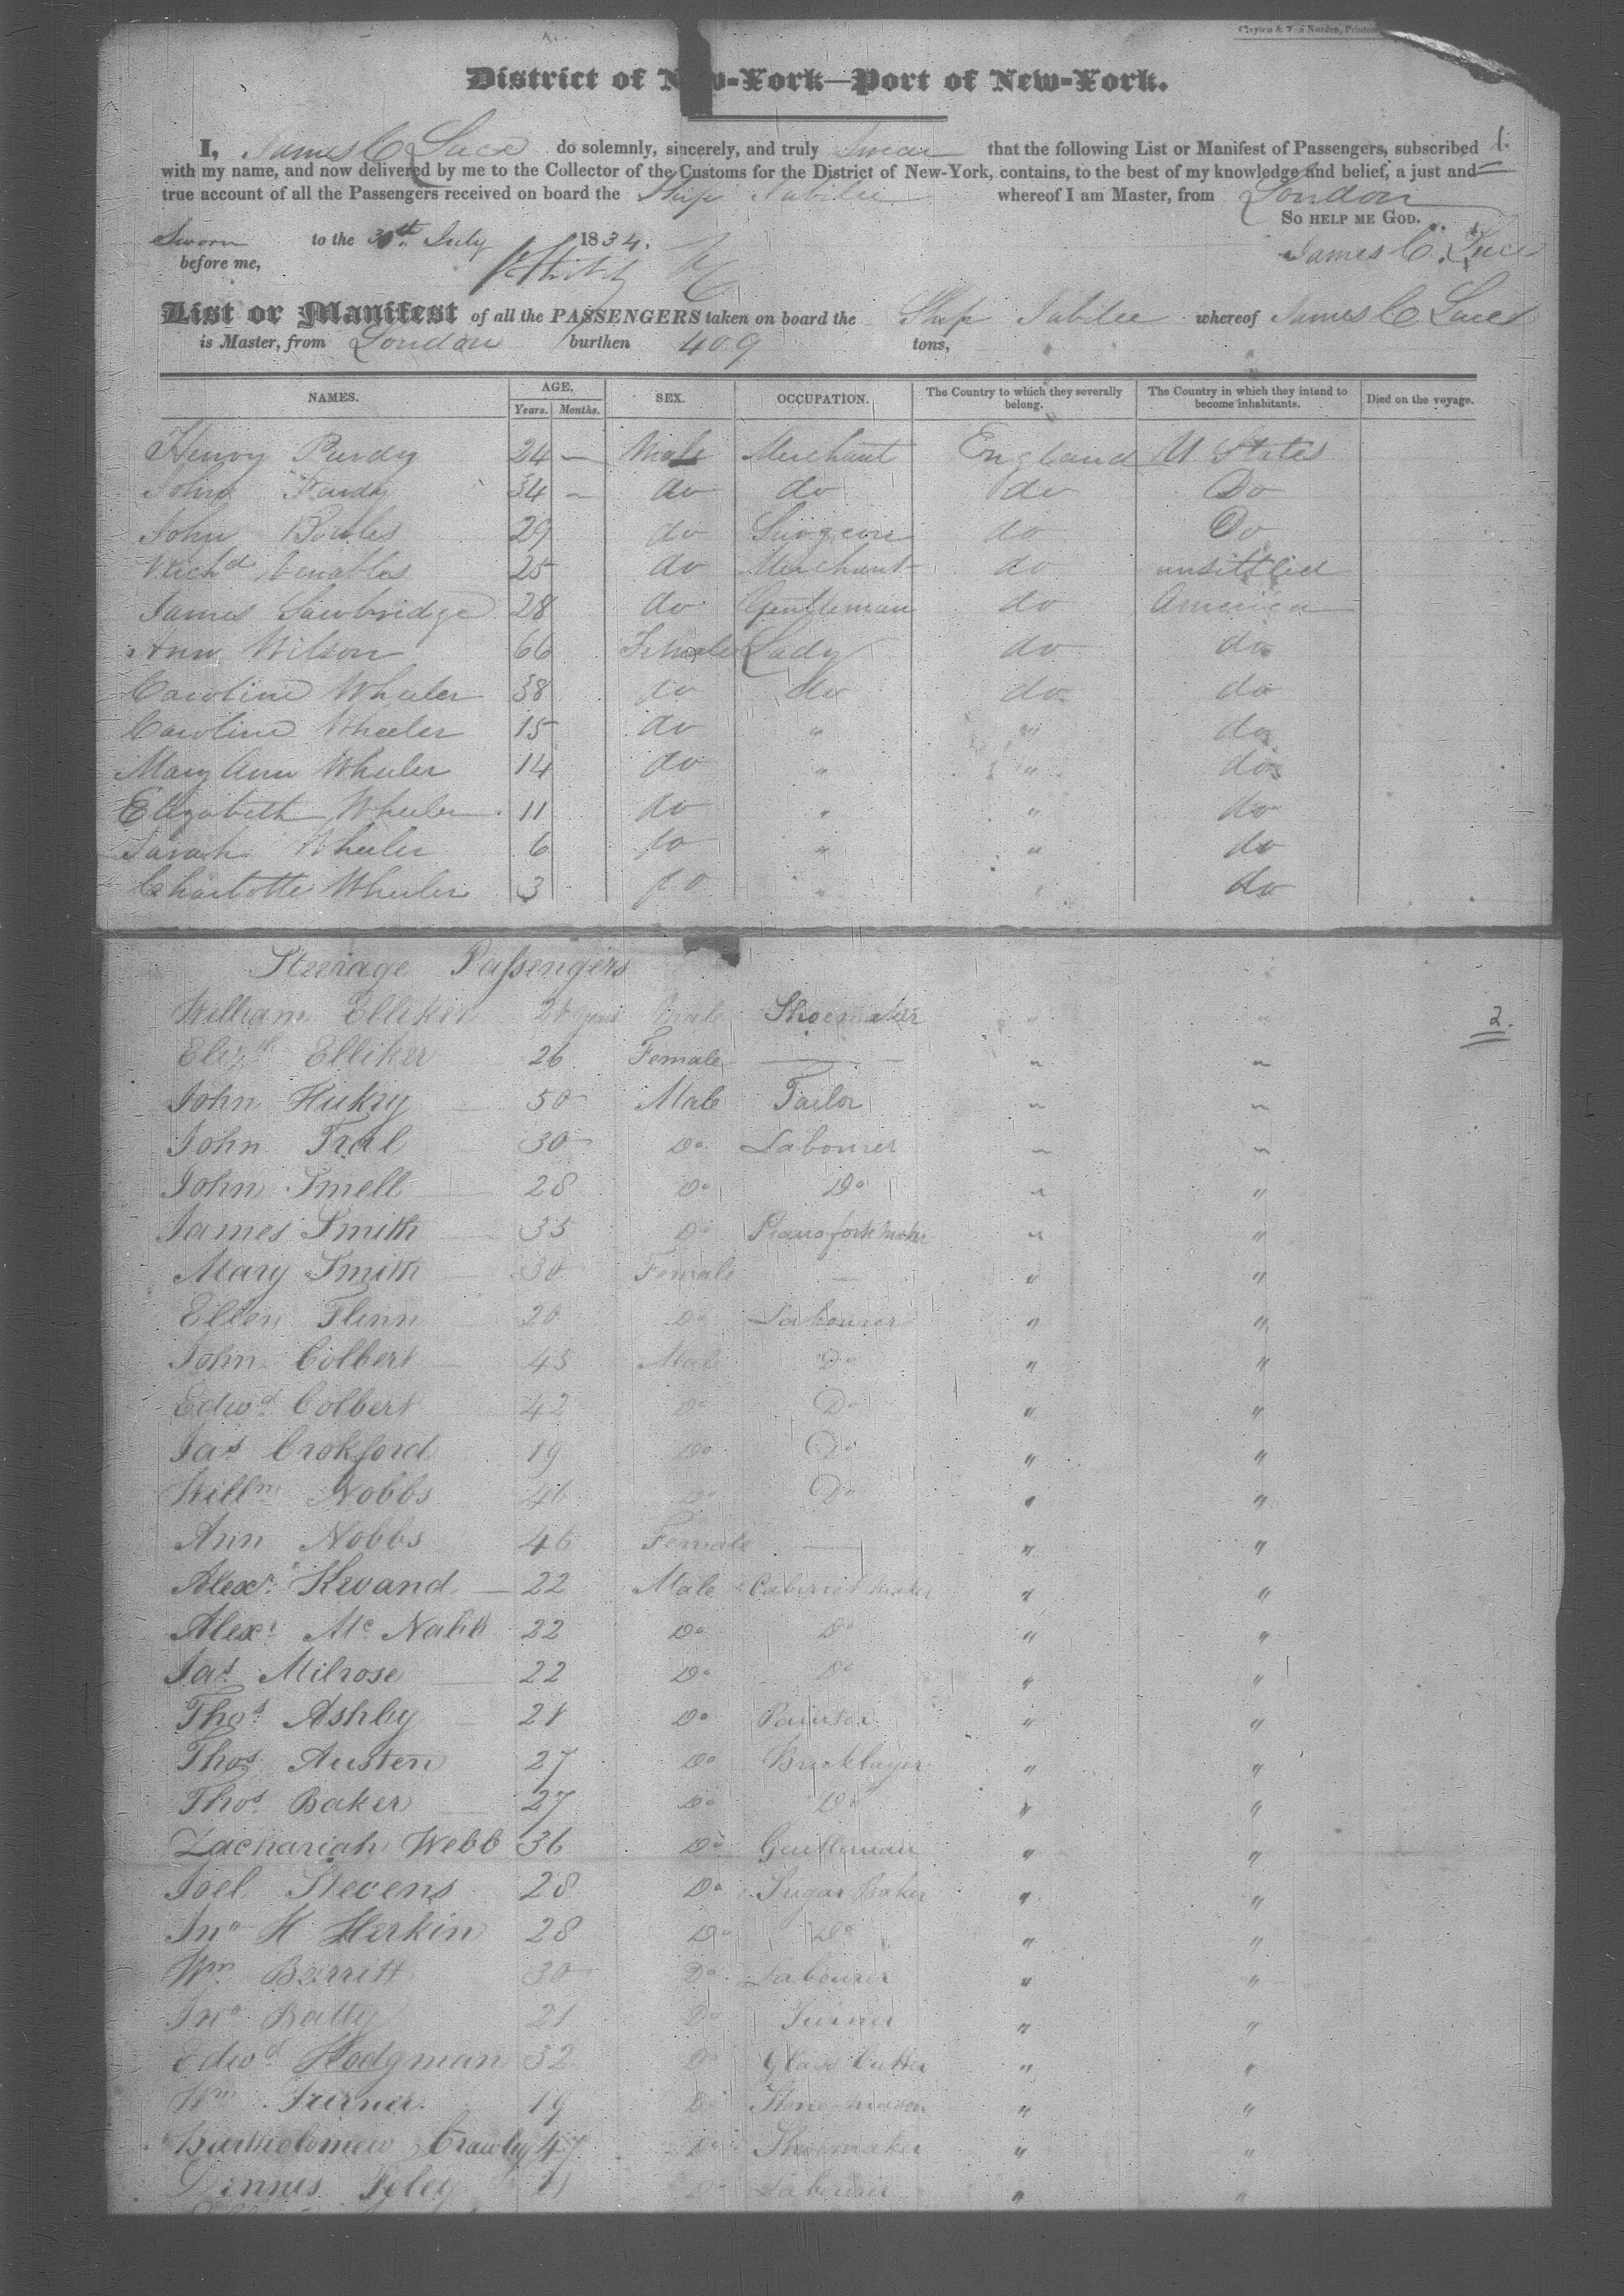 Clayton & Van Norden, Printers
District of New-York—Port of New-York.
I, James C Luce do solemnly, sincerely, and truly Swear that the following List or Manifest of Passengers, subscribed 1.
with my name, and now delivered by me to the Collector of the Customs for the District of New-York, contains, to the best of my knowledge and belief, a just and
true account of all the Passengers received on board the Ship Jubilee whereof I am Master, from London
So help me God.
Sworn to the 30th July 1834.
before me,
James C. Luce
List or Manifest of all the PASSENGERS taken on board the Ship Jubilee whereof James C Luce
is Master, from London burthen 409 tons,
NAMES. AGE. SEX. OCCUPATION. The Country to which they severally belong. The Country in which they intend to become inhabitants. Died on the voyage.
Years. Months.
Henry Purdy 24 — Male Merchant England U States
John 34 — do do do Do
John Bowles 29 do Surgeon do Do
Richd Venables 25 do Merchant do unsittled
James Sawbridge 28 do Gentleman do America
Ann Wilson 66 Female Lady do do
Caroline Wheeler 38 do do do do
Caroline Wheeler 15 do " " do
Mary Ann Wheeler 14 do " " do
Elizabeth Wheeler 11 do " " do
Sarah Wheeler 6 do " " do
Charlotte Wheeler 3 do " " do
Steerage Passengers
William Elliker 28 years Male Shoemaker " " 2.
Elizth Elliker 26 Female — " "
John 50 Male Tailor " "
John 30 Do Labourer " "
John Smell 28 Do Do " "
James Smith 35 Do Pianoforte Maker " "
Mary Smith 30 Female — " "
Ellen Flinn 20 Do Labourer " "
John Colbert 45 Male Do " "
Edwd Colbert 42 Do Do " "
Jas Crokford 19 Do Do " "
Willm Nobbs 46 Do Do " "
Ann Nobbs 46 Female — " "
Alexr Kwand 22 Male Cabinet Maker " "
Alexr Mc Nabb 22 Do Do " "
Jas Milrose 22 Do Do " "
Thos Ashby 28 Do Painter " "
Thos Austen 27 Do Bricklayer " "
Thos Baker 27 Do Do " "
Zachariah Webb 36 Do Gentleman " "
Joel Stevens 28 Do Sugar Baker " "
Jno H Herkin 28 Do Do " "
Wm Barritt 30 Do Labourer " "
Jno Batty 21 Do Turner " "
Edwd Hodgman 32 Do Glass Cutter " "
Wm Turner 19 Do Stone mason " "
Bartholomew Crawley 47 Do Shoemaker " "
Dennis Foley Do Labourer " "